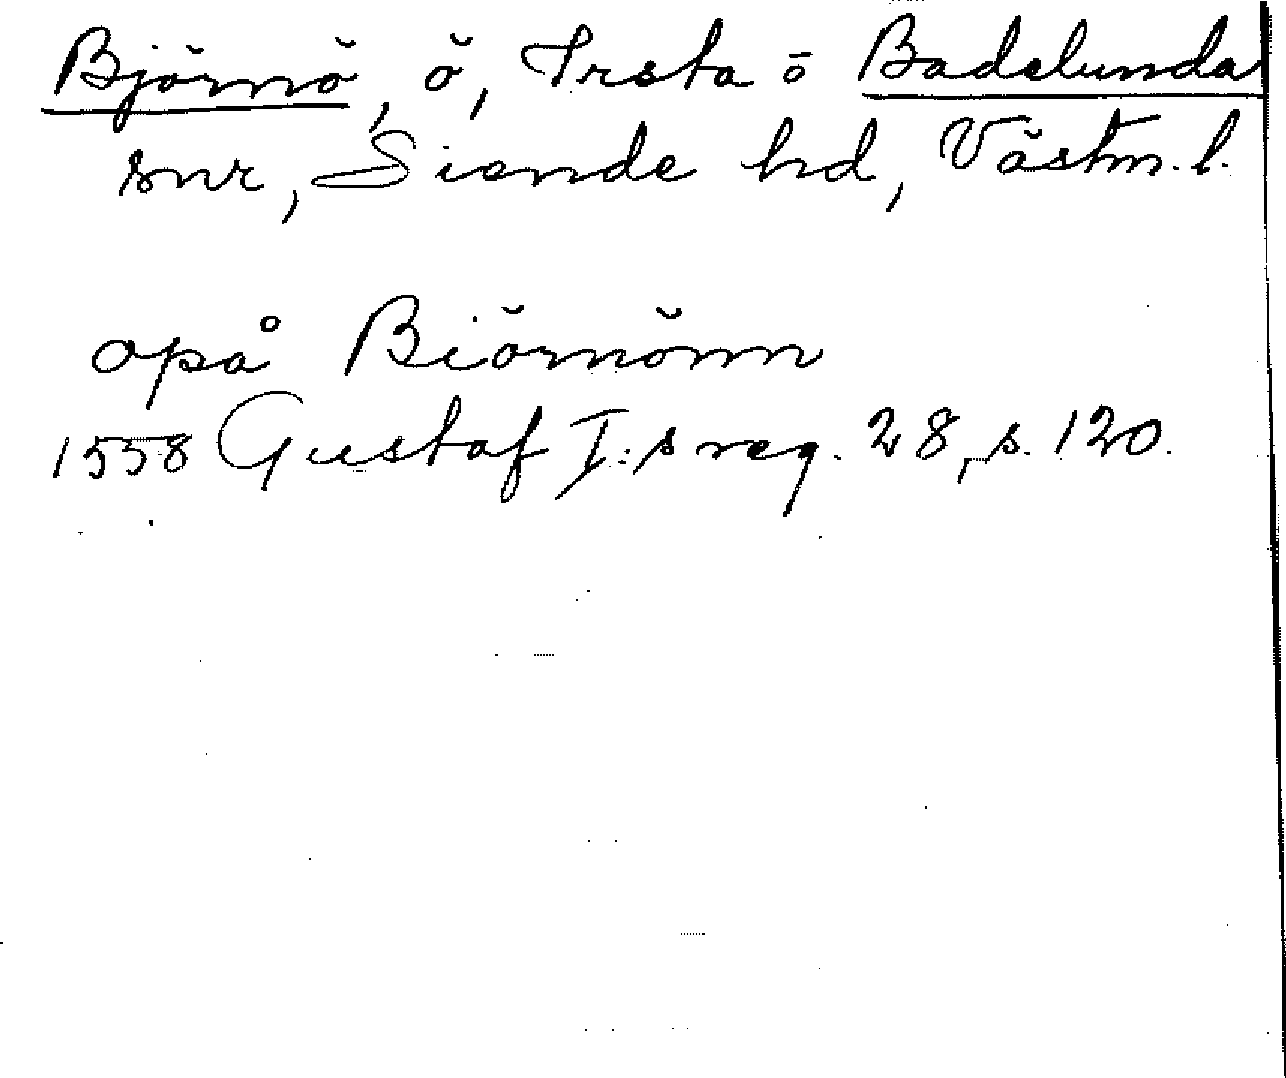 Björnö, ö, Irsta o Badelunda
snr, Siende hd, Västm. l.
opå Biörnönn
1558 Gustaf I:s reg. 28, s. 120.